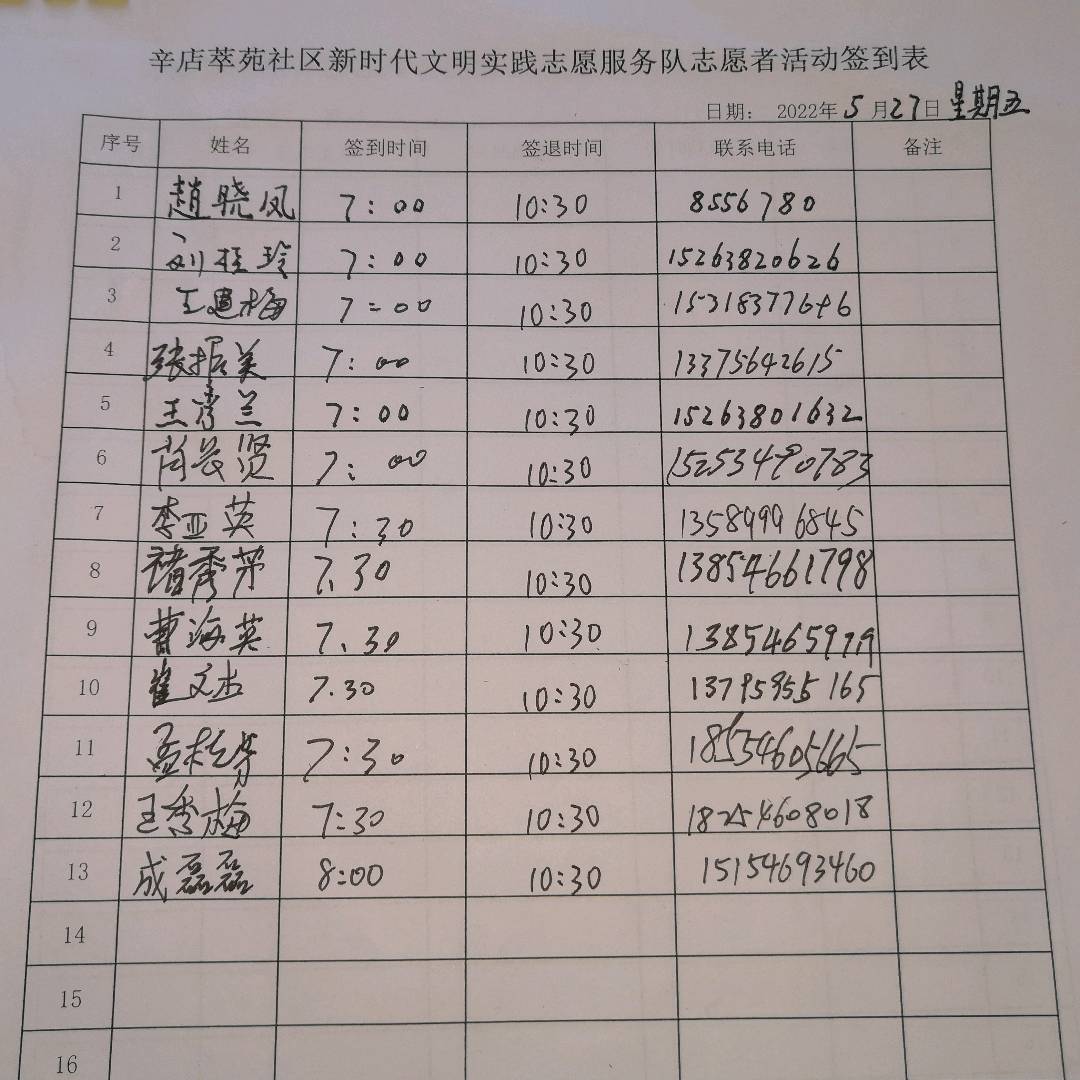 辛店萃苑社区新时代文明实践志愿服务队志愿者活动签到表
日期： 2022年5月27日 星期五
序号 姓名 签到时间 签退时间 联系电话 备注
1 趙晓凤 7:00 10:30 8556780
2 刘桂玲 7:00 10:30 15263820626
3 王建梅 7=00 10:30 15318377646
4 张振美 7:00 10:30 13375642615
5 王彦兰 7:00 10:30 15263801632
6 肖长贤 7:00 10:30 15253490783
7 李亚英 7:30 10:30 13589996845
8 褚秀芹 7.30 10:30 13854661798
9 曹海英 7.30 10:30 13854659719
10 崔文杰 7.30 10:30 13795955165
11 孟 7:30 10:30 18554605665
12 王秀梅 7:30 10:30 18254608018
13 成磊磊 8:00 10:30 15154693460
14
15
16